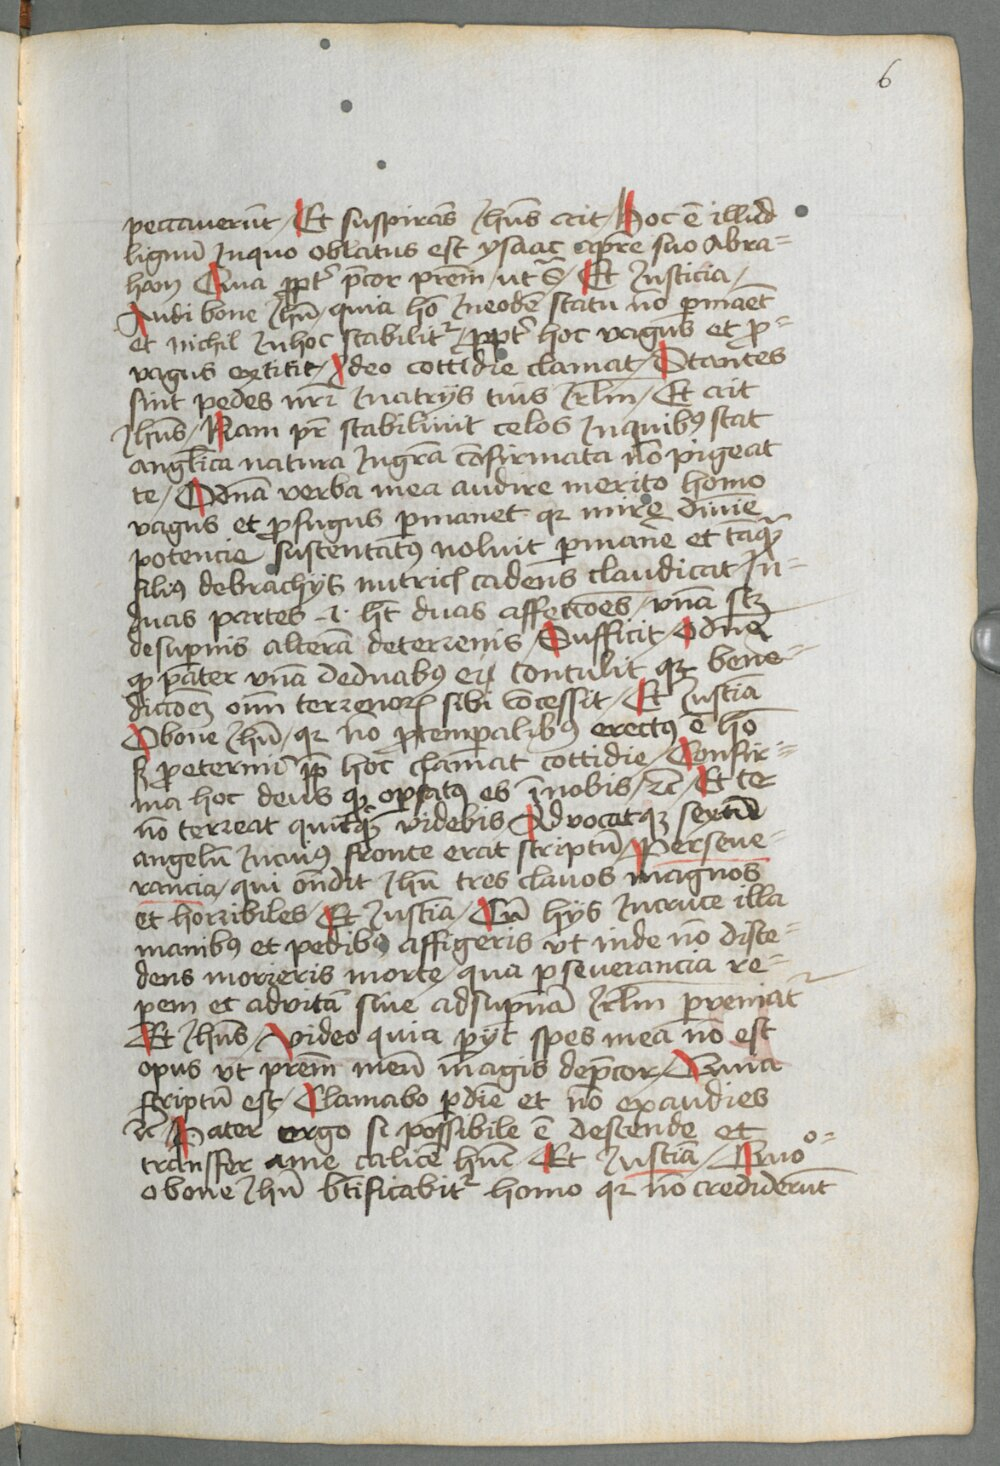 6
peccauerūt / Et suspirās Jhūs ait / Hoc ē illud
lignū Jnquo oblatus est ysaac apr̄e suo Abra=
ham Quia p̱pt̄ p̄cor pr̄em / ut S̄ / Et Justicia /
Audi bone Jhū / quia hō Jneodē statu nō ꝑmāet
et nichil Jnhoc stabilit᷑ / p̱pt̄ hoc vagus et ꝓ=
vagus extitit / Jdeo cottidie clamat / Stantes
sint pedes nr̄i Jnatrijs tuis Jrl̄m / Et ait
Jhūs / Nam pr̄ stabiliuit celos Jnquibꝰ stat
angl̄ica natura Jngr̄a cōfirmata nō pigeat
te / O dn̄a verba mea audire merito homo
vagus et ꝓfugus ꝑmanet qꝛ mire diuīe
potencie sustentatꝰ noluit ꝑmanē et tāqꝫ
filiꝰ debrachijs nutricꝭ cadens claudicat Jn=
duas partes .i. hт̄ duas affectōes / vnā scꝫ
desuꝑnis alterā deterrenis / Sufficit / O dn̄e
qꝫ pāter vnā deduabꝰ ei contulit qꝛ bene=
dictōeꝫ oīm terrenoꝝ sibi cōcessit / Et Justīa
O bone Jhū / qꝛ nō ꝓtemꝑalibꝰ erectꝰ ē hō
sꝫ ꝓeternū ip̄ hoc clamat cottidie / Confir=
ma hoc deus qꝫ oꝑatꝰ es īnobis / ꝛc̄ / Et te
nō terreat quitqꝫ videbis Aduocatqꝫ sextū
angelū Jncuiꝰ fronte erat scriptū / Perseue=
rancia / qui ōndit Jhū tres clauos magnos
et horribiles / Et Justīa / Cū hijs Jncruce illa
manibꝰ et pedibꝰ affigeris vt inde nō disce=
dens morieris morte / qua ꝑseuerancia re=
pem et advitā siue adsuꝑnā Jrl̄m ꝑveniat᷑
Et Jhūs / Video quia ꝑijt spes mea nō est
opus vt pr̄em meū magis dep̄cor / Quia
scriptū est / Clamabo ꝑdiē et nō exaudies
ꝛc̄ Pater ergo si possibile ē descende et
transfer ame calicē hūc Et Justīa / Quo°=
o bone Jhū bt̄ificabit᷑ homo qꝛ nō crediderūt